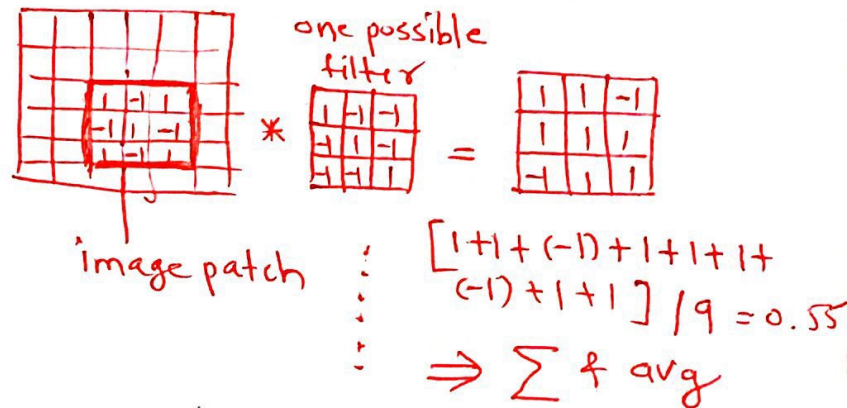 one possible
filter
1 -1 1
-1 1 -1
1 -1 1
*
1 -1 -1
-1 1 -1
-1 -1 1
=
1 1 -1
1 1 1
-1 1 1
image patch
[1+1+(-1)+1+1+1+
(-1)+1+1]/9 = 0.55
⇒ ∑ & avg